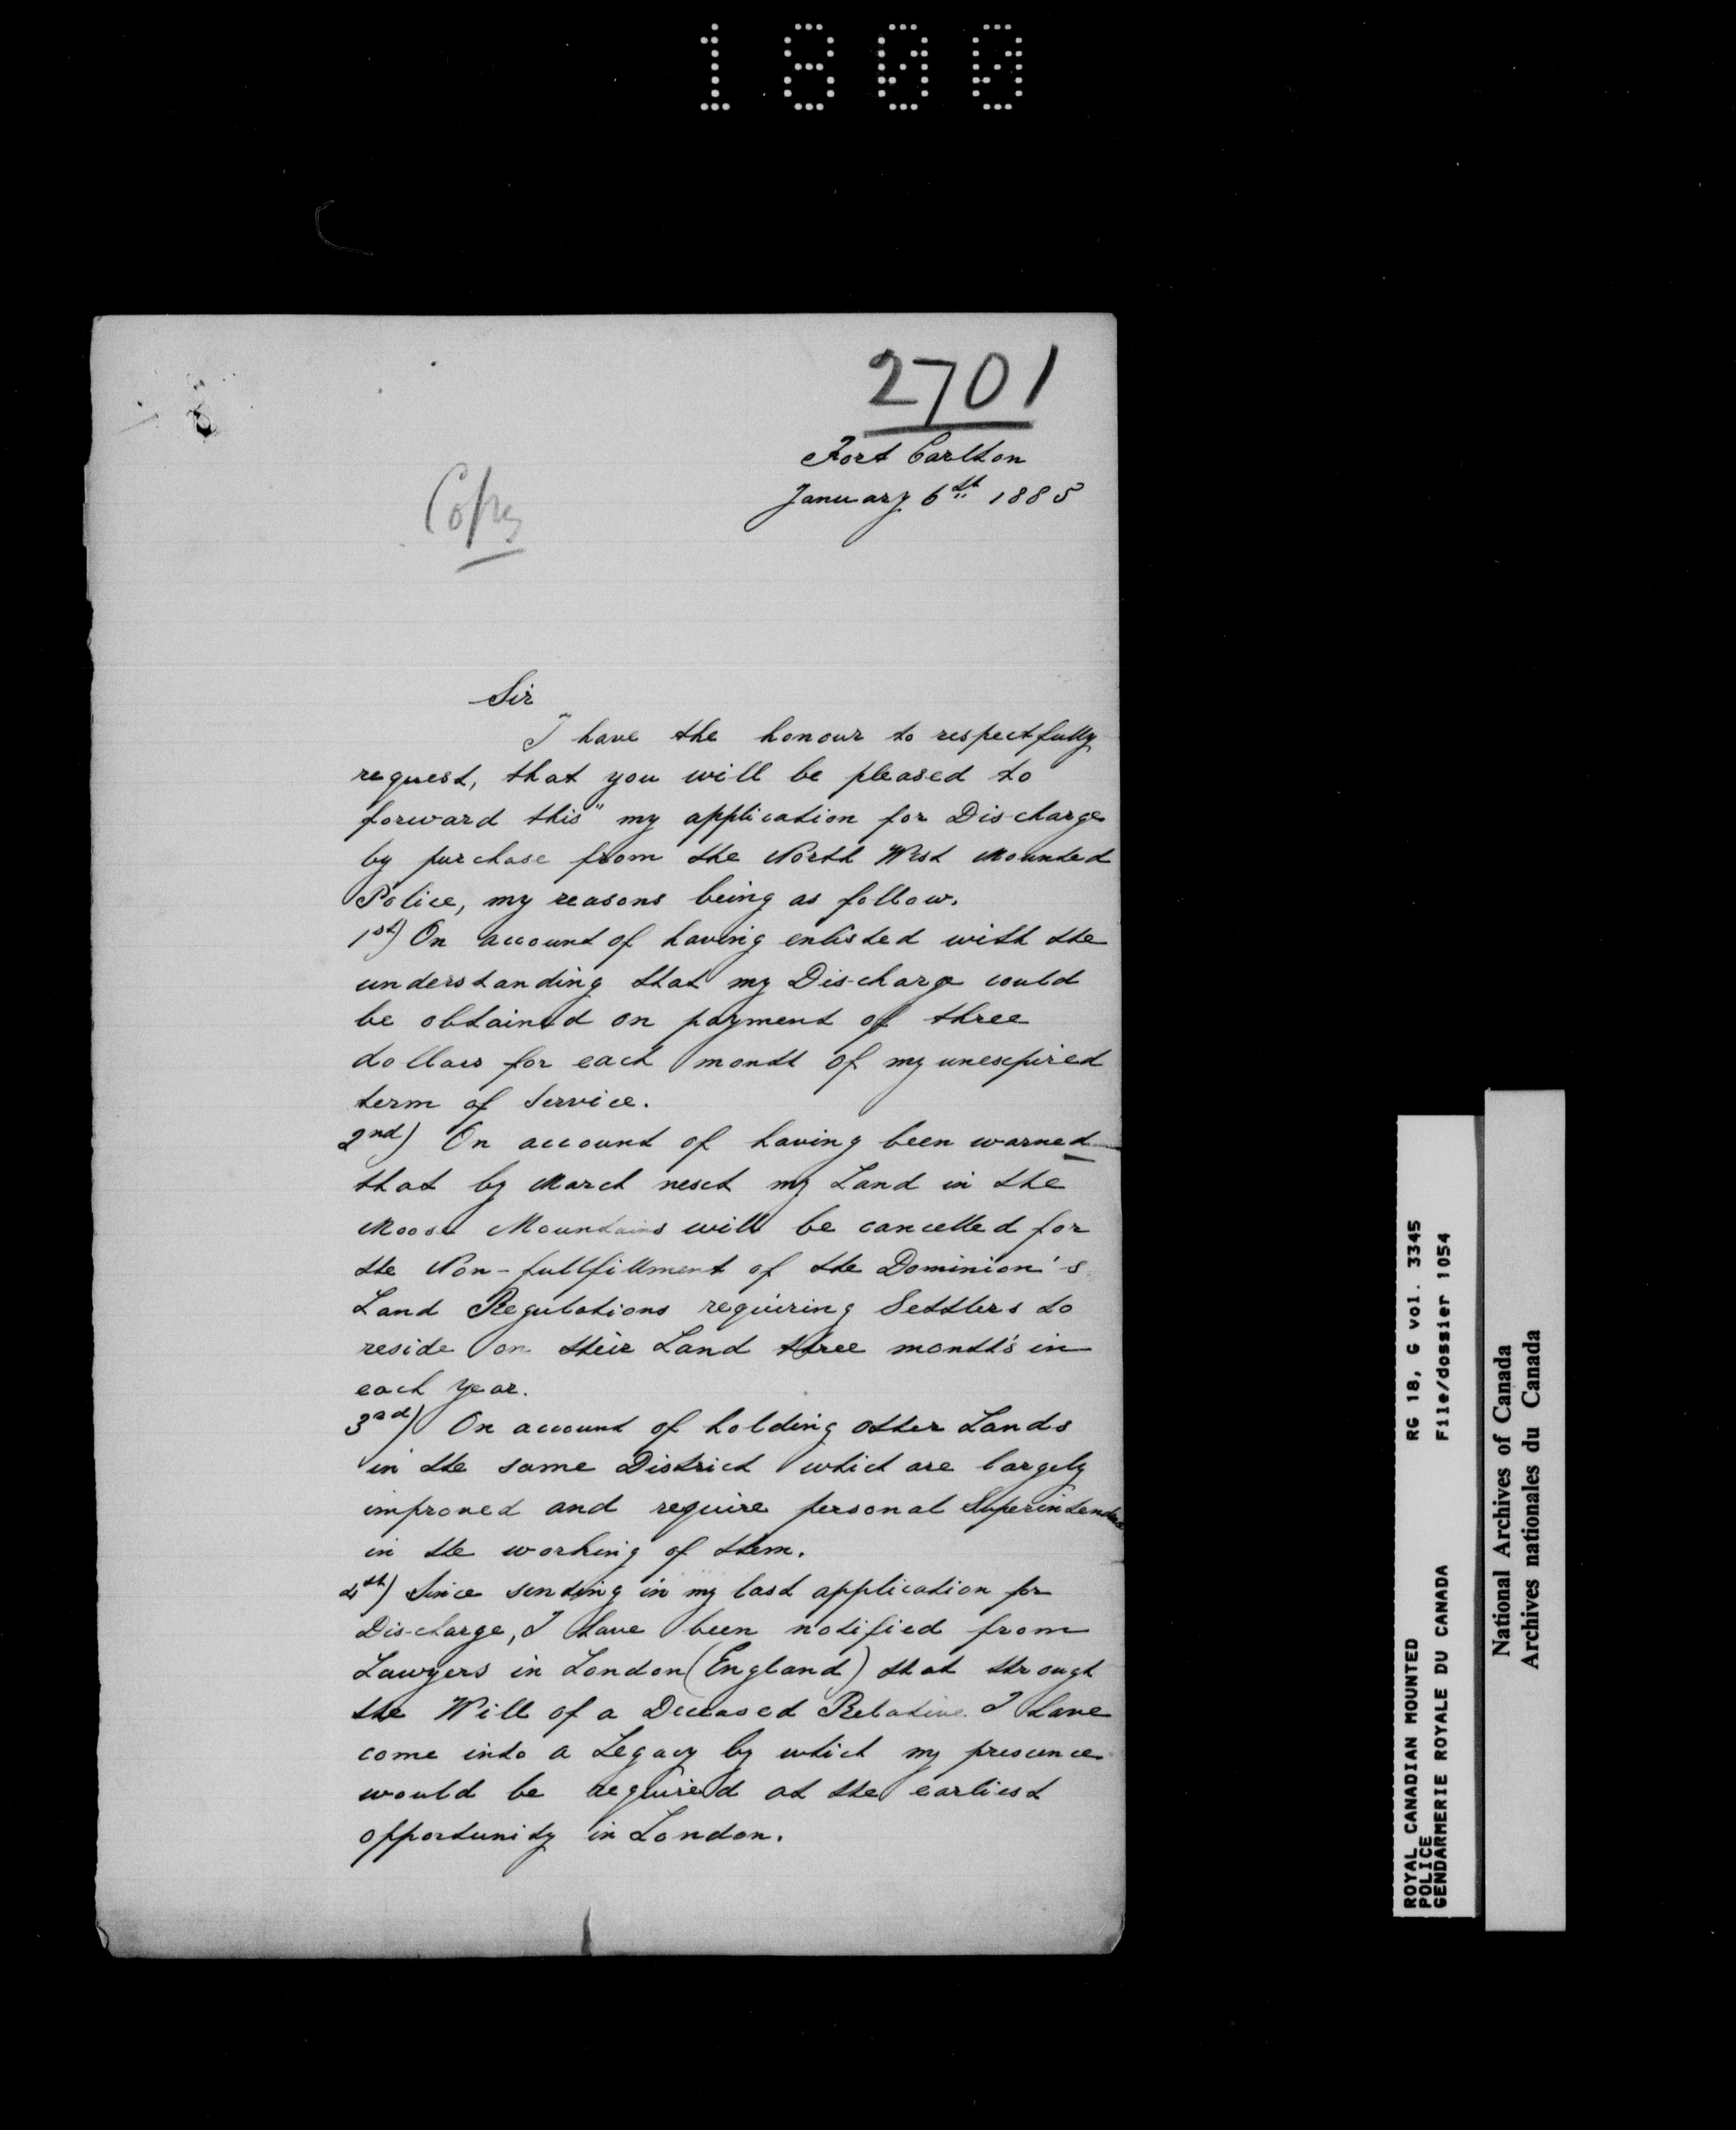 1800
2701
Fort Carlton
January 6th 1885
Copy
Sir
I have the honour to respectfully
request, that you will be pleased to
forward this" my application for Discharge
by purchase from the North West Mounted
Police, my reasons being as follow.
1st) On account of having enlisted with the
understanding that my Discharge could
be obtained on payment of three
dollars for each month of my unexpired
term of Service.
2nd) On account of having been warned
that by March next my Land in the
Moose Mountains will be cancelled for
the Non-fullfillment of the Dominion's
Land Regulations requiring Settlers to
reside on their Land three month's in
each year.
3rd) On account of holding other Lands
in the same District which are largely
improved and require personal Superintendence
in the working of them.
4th) Since sending in my last application for
Discharge, I have been notified from
Lawyers in London (England) that through
the Will of a Deceased Relative I have
come into a Legacy by which my presence
would be required at the earliest
opportunity in London.
ROYAL CANADIAN MOUNTED RG 18, G vol. 3345
POLICE
GENDARMERIE ROYALE DU CANADA File/dossier 1054
National Archives of Canada
Archives nationales du Canada